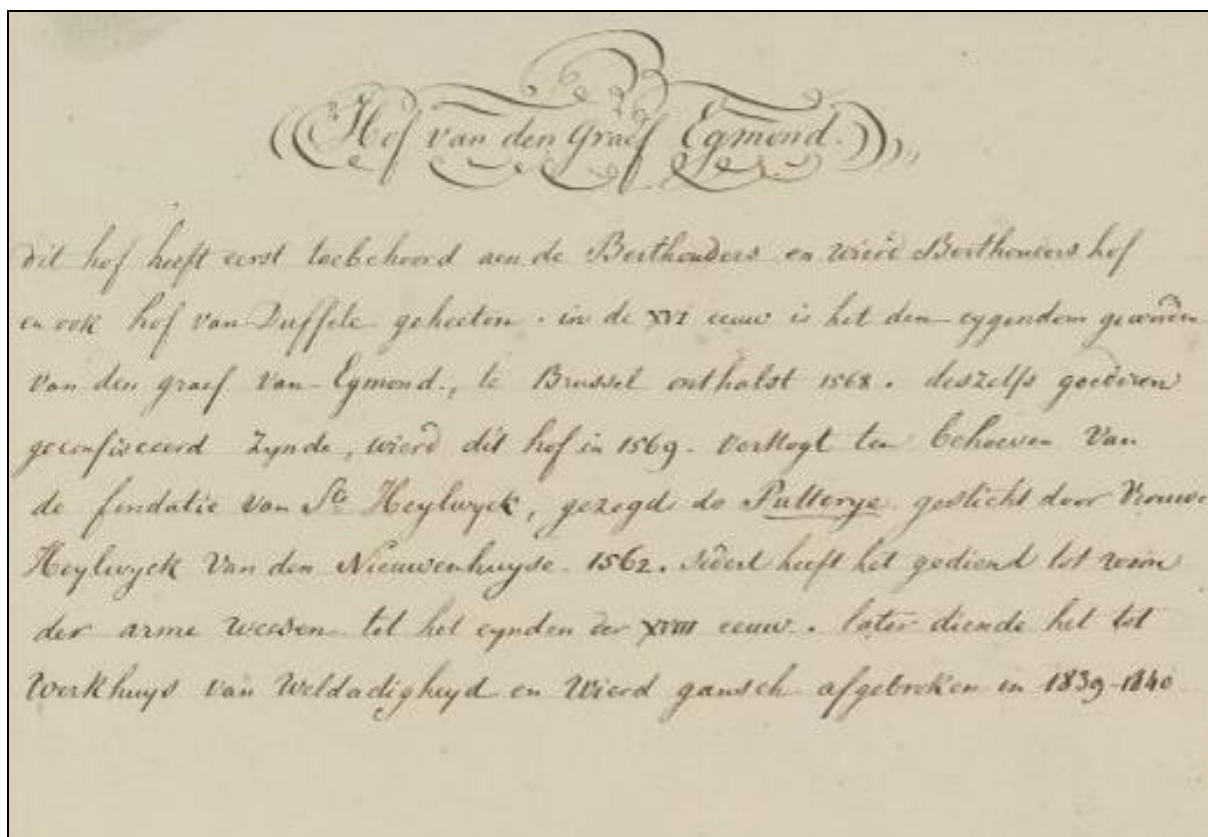 Hof van den Graef Egmond.
dit hof heeft eerst toebehoord aen de Berthouders en wierd Berthouders hof
en ook hof van Duffele geheeten. in de XVI eeuw is het den eygendom geworden
van den graef Van Egmond, te Brussel onthalst 1568. deszelfs goederen
geconfisceerd Zynde, wierd dit hof in 1569. verkogt ten behoeven Van
de fondatie van Ste Heylwyck, gezegd de Putterye gesticht door Vrouwe
Heylwyck Van den Nieuwenhuyse 1562. sedert heeft het gediend tot woon
der arme weesen tot het eynden der XVIII eeuw. later diende het tot
Werkhuys van Weldadigheyd en Wierd gansch afgebroken in 1839-1840